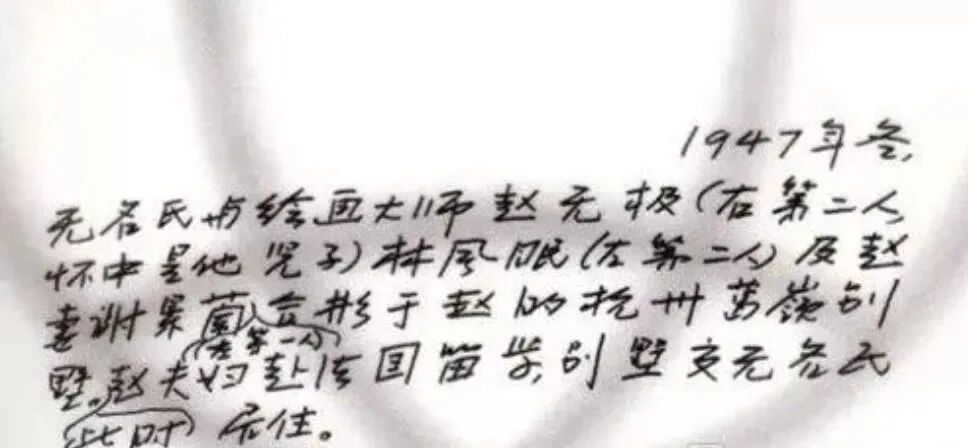 1947年冬,
无名氏与绘画大师赵无极(右第二人,
怀中是他儿子)林风眠(左第二人)及赵
妻谢景兰合影于赵的杭州葛嶺别
(左第一人)
墅。赵夫妇赴法国留学,别墅交无名氏
(此时) 居住。